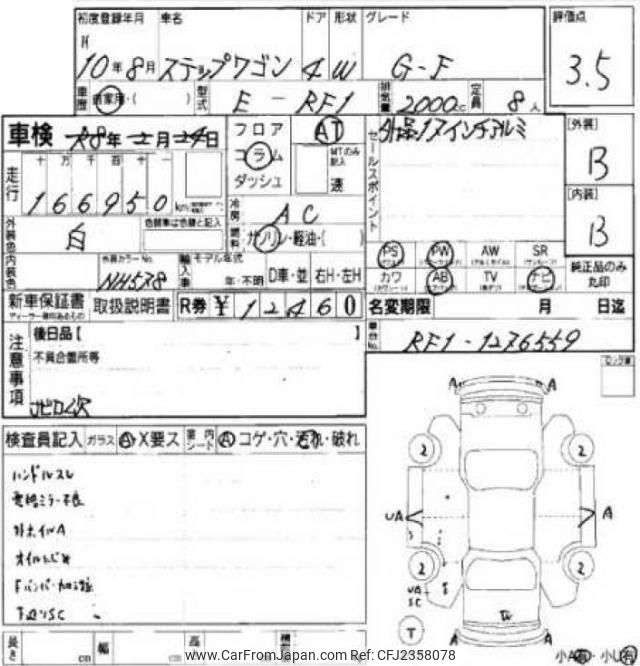 初度登録年月 車名 ドア 形状 グレード 評価点
H
10年8月 ステップワゴン 4 W G-F 3.5
車歴 自家用・( ) 型式 E-RF1 排気量 2000cc 定員 8人
車検 R8年2月24日 フロア AT セールスポイント 外品17インチアルミ [外装]
コラム MTのみ記入 B
ダッシュ 速
走行 十 万 千 百 十 一
166950 km
冷房 AC [内装]
外装色 白 色替車は色替と記入 燃料 ガソリン・軽油・( ) B
内装色 外装カラーNo. NH578 輸入車 モデル年式 年・不明 D車・並 右H・左H
PS PW AW SR 純正品のみ丸印
カワ AB TV ナビ
新車保証書 取扱説明書 R券 ¥ 12460 名変期限 月 日迄
ディーラー印のあるもの
車台No. RF1-1276559
注意事項 後日品【 】
不具合箇所等
ロック車
A A
検査員記入 ガラス A・X要ス 室内シート A コゲ・穴・汚れ・破れ
2 2
ハンドルスレ
電格ミラー不良
外ホイルA
UA A
2 2
UA
SC
下廻りSC
W
T
A A
長さ cm 幅 cm 高 cm
小A 小U
www.CarFromJapan.com Ref: CFJ2358078